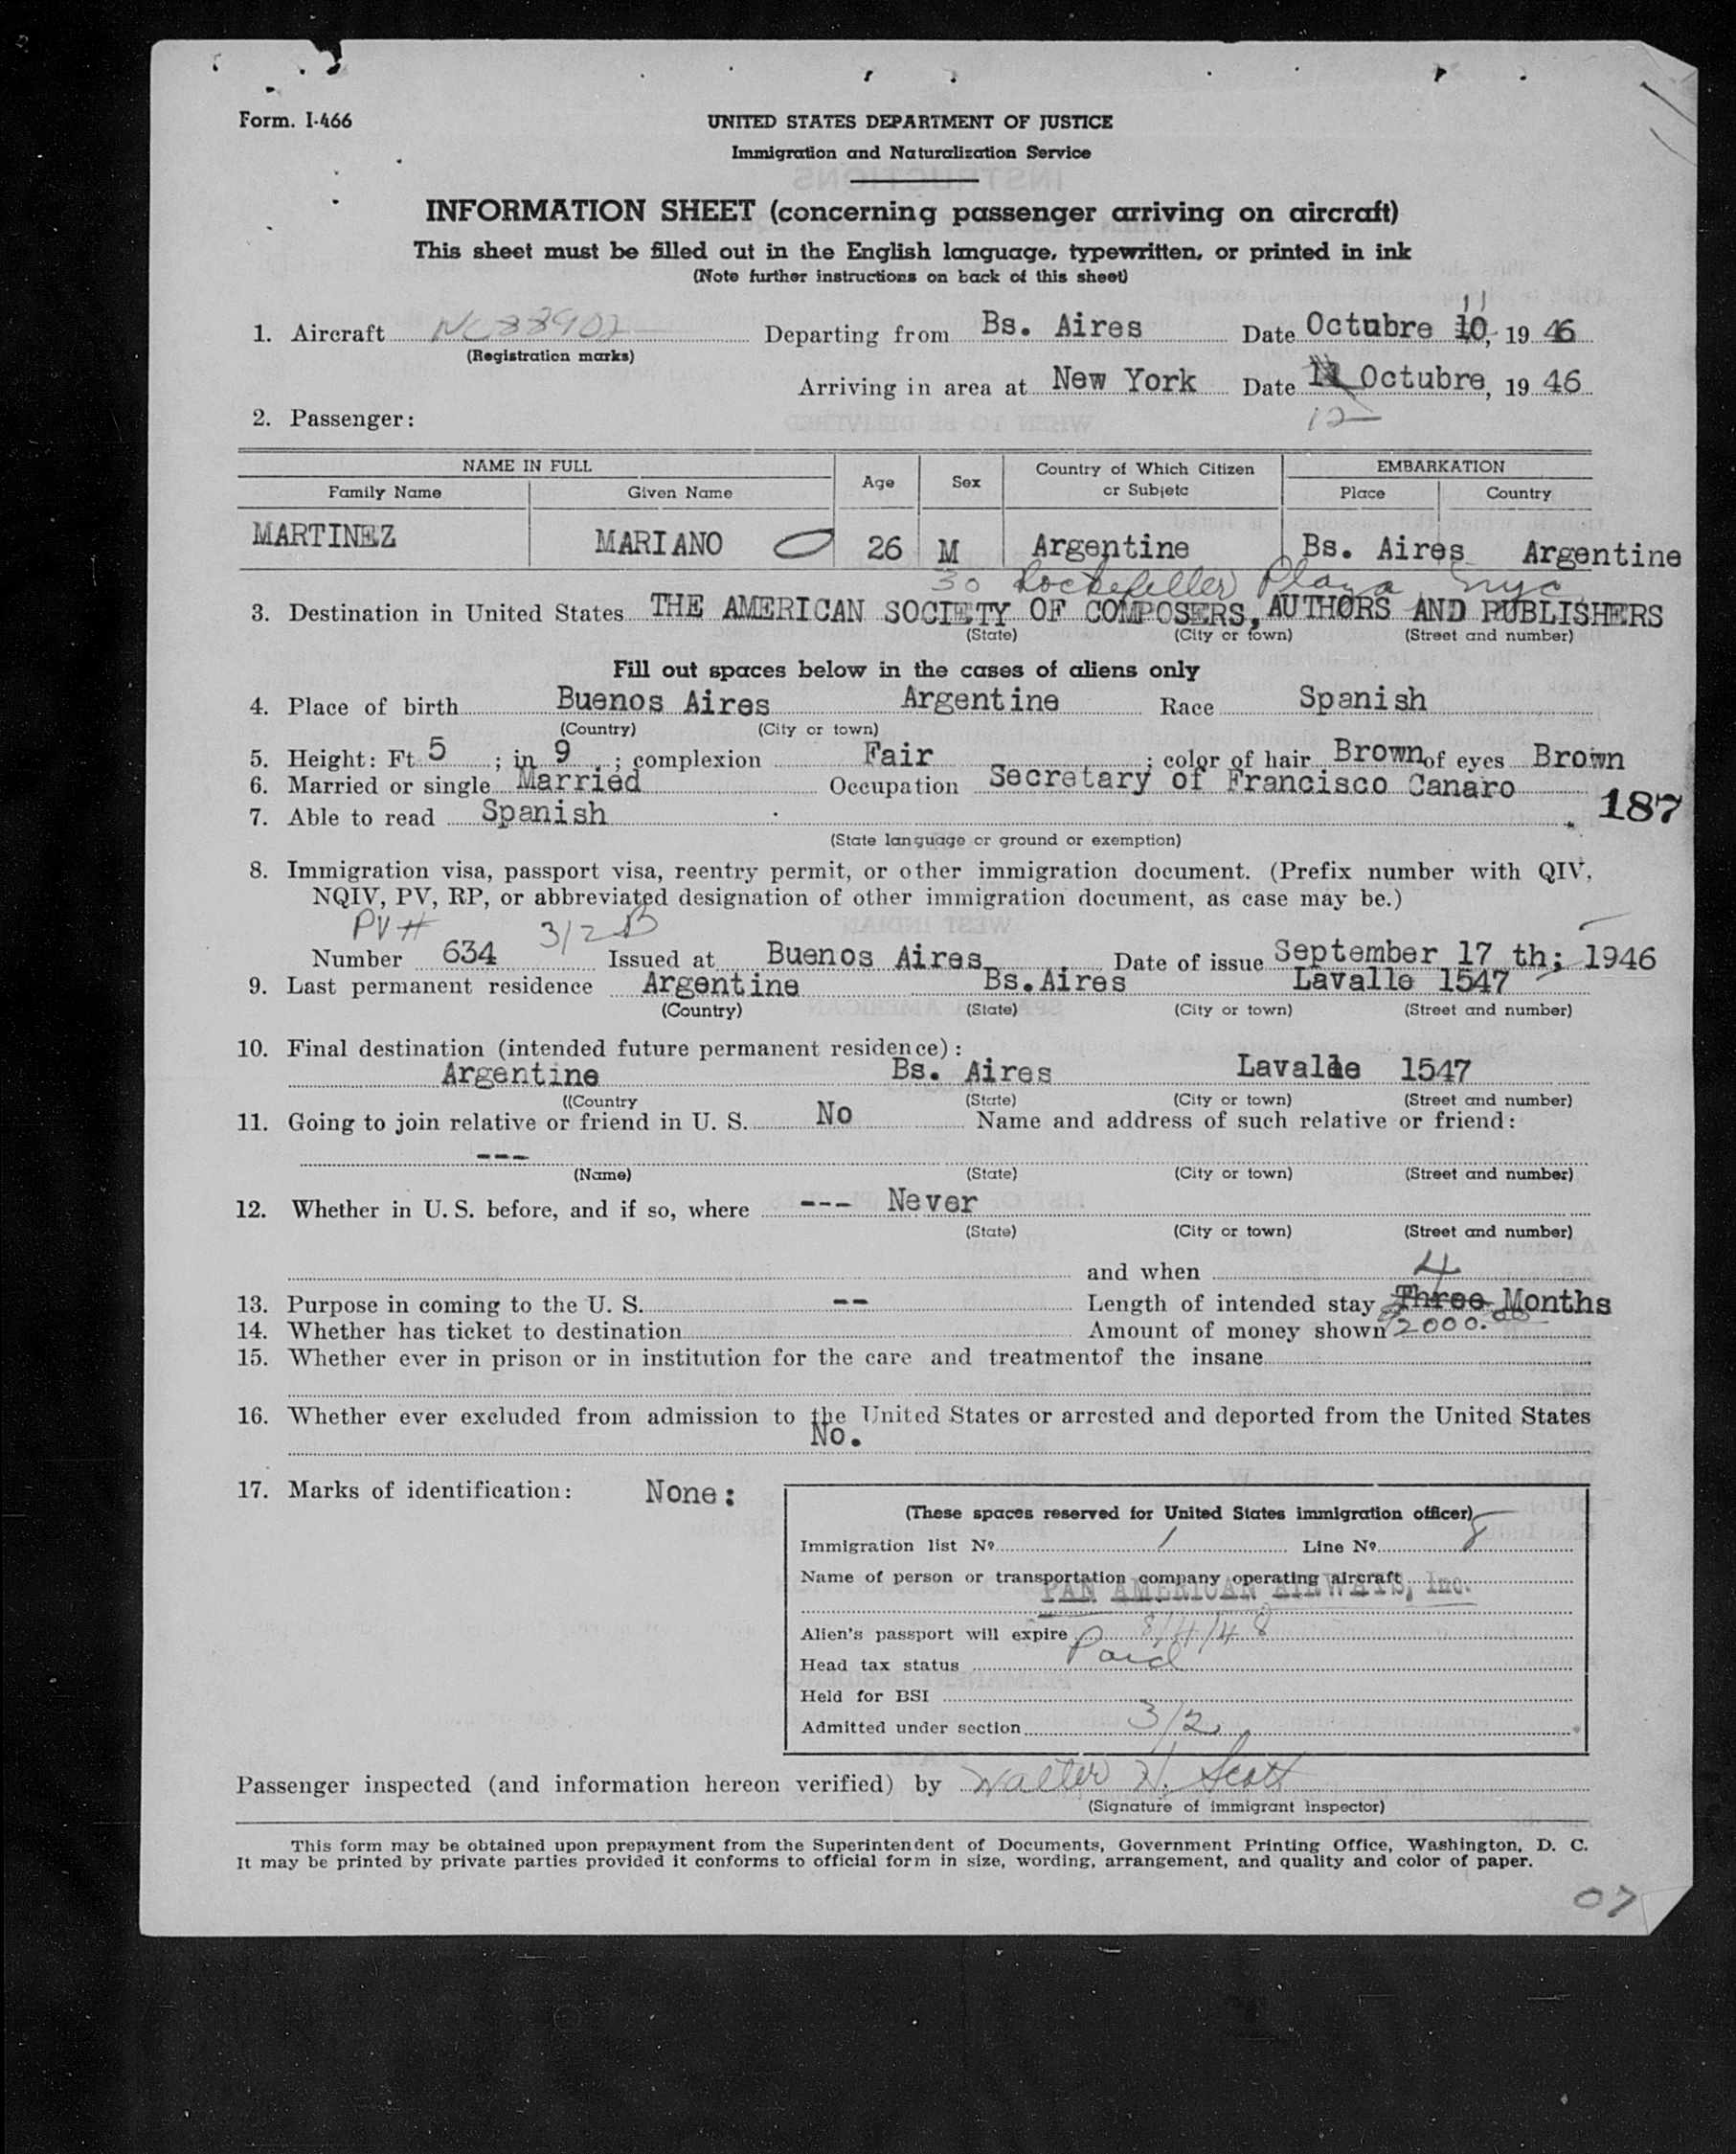 Form. I-466
UNITED STATES DEPARTMENT OF JUSTICE
Immigration and Naturalization Service
INFORMATION SHEET (concerning passenger arriving on aircraft)
This sheet must be filled out in the English language, typewritten, or printed in ink
(Note further instructions on back of this sheet)
11
1. Aircraft NC88902 Departing from Bs. Aires Date Octubre 10, 19 46
(Registration marks)
Arriving in area at New York Date Octubre, 19 46
12
2. Passenger:
NAME IN FULL Age Sex Country of Which Citizen or Subjetc EMBARKATION
Family Name Given Name Place Country
MARTINEZ MARIANO 26 M Argentine Bs. Aires Argentine
30 Rockefeller Plaza NYC
3. Destination in United States THE AMERICAN SOCIETY OF COMPOSERS, AUTHORS AND PUBLISHERS
(State) (City or town) (Street and number)
Fill out spaces below in the cases of aliens only
4. Place of birth Buenos Aires Argentine Race Spanish
(Country) (City or town)
5. Height: Ft 5 ; in 9 ; complexion Fair ; color of hair Brown of eyes Brown
6. Married or single Married Occupation Secretary of Francisco Canaro
187
7. Able to read Spanish
(State language or ground or exemption)
8. Immigration visa, passport visa, reentry permit, or other immigration document. (Prefix number with QIV,
NQIV, PV, RP, or abbreviated designation of other immigration document, as case may be.)
PV# 3/2 B
Number 634 Issued at Buenos Aires Date of issue September 17 th; 1946
9. Last permanent residence Argentine Bs.Aires Lavalle 1547
(Country) (State) (City or town) (Street and number)
10. Final destination (intended future permanent residence):
Argentine Bs. Aires Lavalle 1547
((Country (State) (City or town) (Street and number)
11. Going to join relative or friend in U. S. No Name and address of such relative or friend:
---
(Name) (State) (City or town) (Street and number)
12. Whether in U. S. before, and if so, where --- Never
(State) (City or town) (Street and number)
and when
4
13. Purpose in coming to the U. S. -- Length of intended stay Three Months
14. Whether has ticket to destination Amount of money shown $2000.00
15. Whether ever in prison or in institution for the care and treatmentof the insane
16. Whether ever excluded from admission to the United States or arrested and deported from the United States
No.
17. Marks of identification: None:
(These spaces reserved for United States immigration officer)
Immigration list Nº 1 Line Nº 8
Name of person or transportation company operating aircraft
PAN AMERICAN AIRWAYS, Inc.
Alien's passport will expire 8/4/48
Head tax status Paid
Held for BSI
Admitted under section 3/2
Passenger inspected (and information hereon verified) by Walter H. Scott
(Signature of immigrant inspector)
This form may be obtained upon prepayment from the Superintendent of Documents, Government Printing Office, Washington, D. C.
It may be printed by private parties provided it conforms to official form in size, wording, arrangement, and quality and color of paper.
07